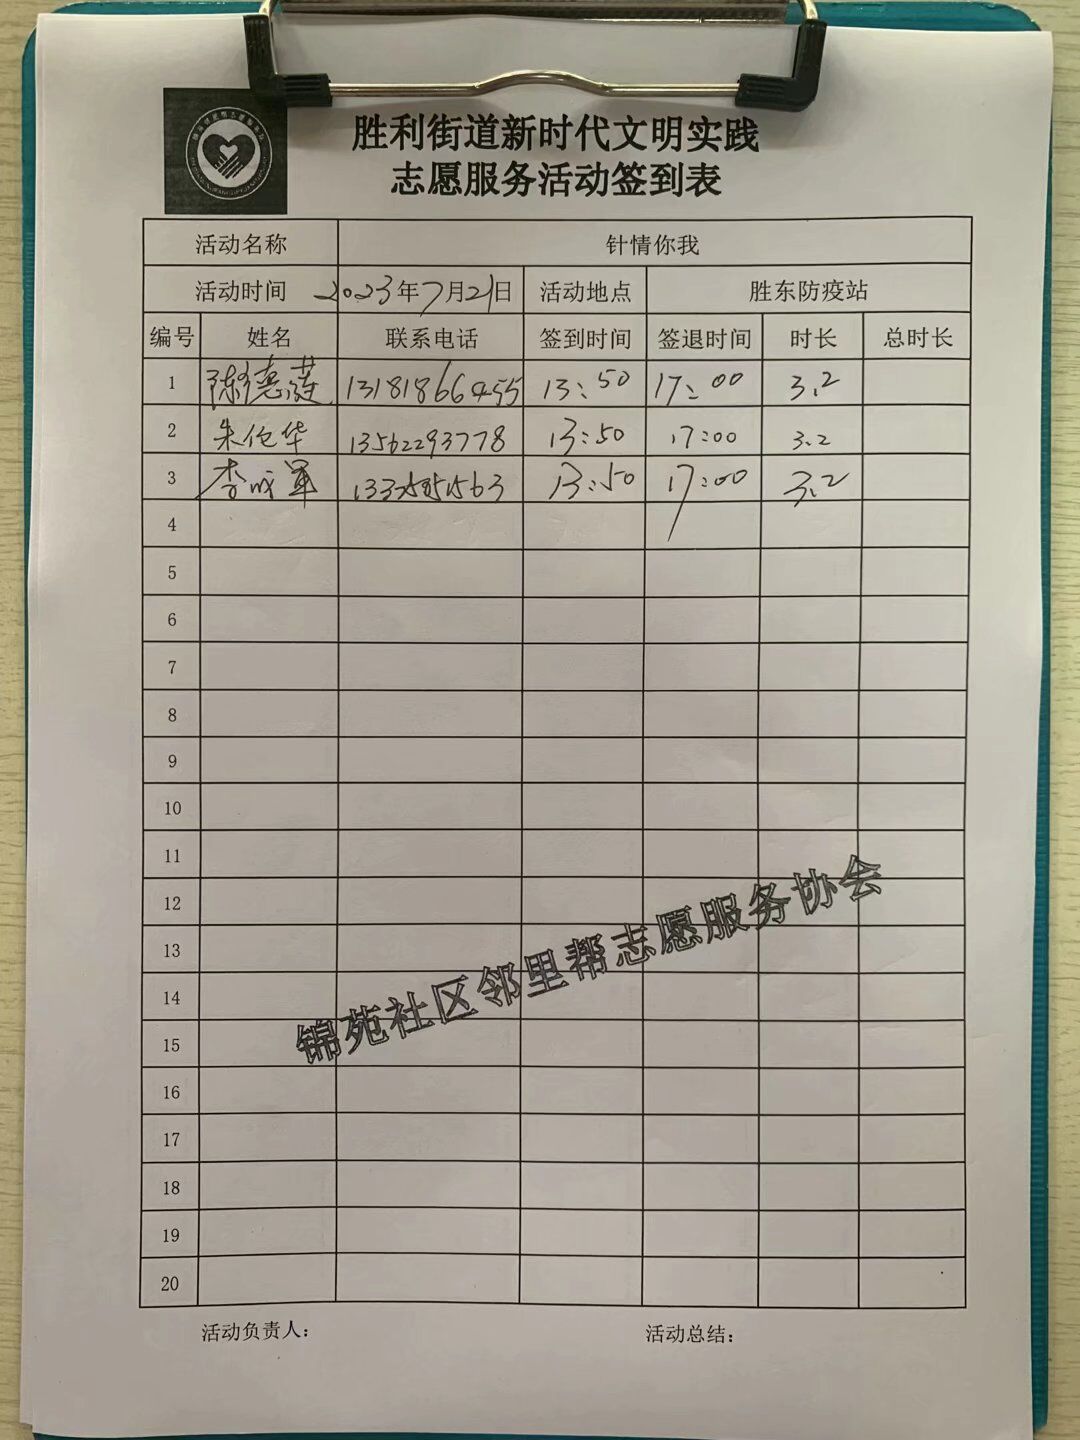 胜利街道新时代文明实践
志愿服务活动签到表
活动名称 针情你我
活动时间 2023年7月21日 活动地点 胜东防疫站
编号 姓名 联系电话 签到时间 签退时间 时长 总时长
1 陈德莲 13181866455 13:50 17:00 3.2
2 朱伦华 13562293778 13:50 17:00 3.2
3 李成军 13:50 17:00 3.2
4
5
6
7
8
9
10
11
12
13
14
15
16
17
18
19
20
锦苑社区邻里帮志愿服务协会
活动负责人: 活动总结: